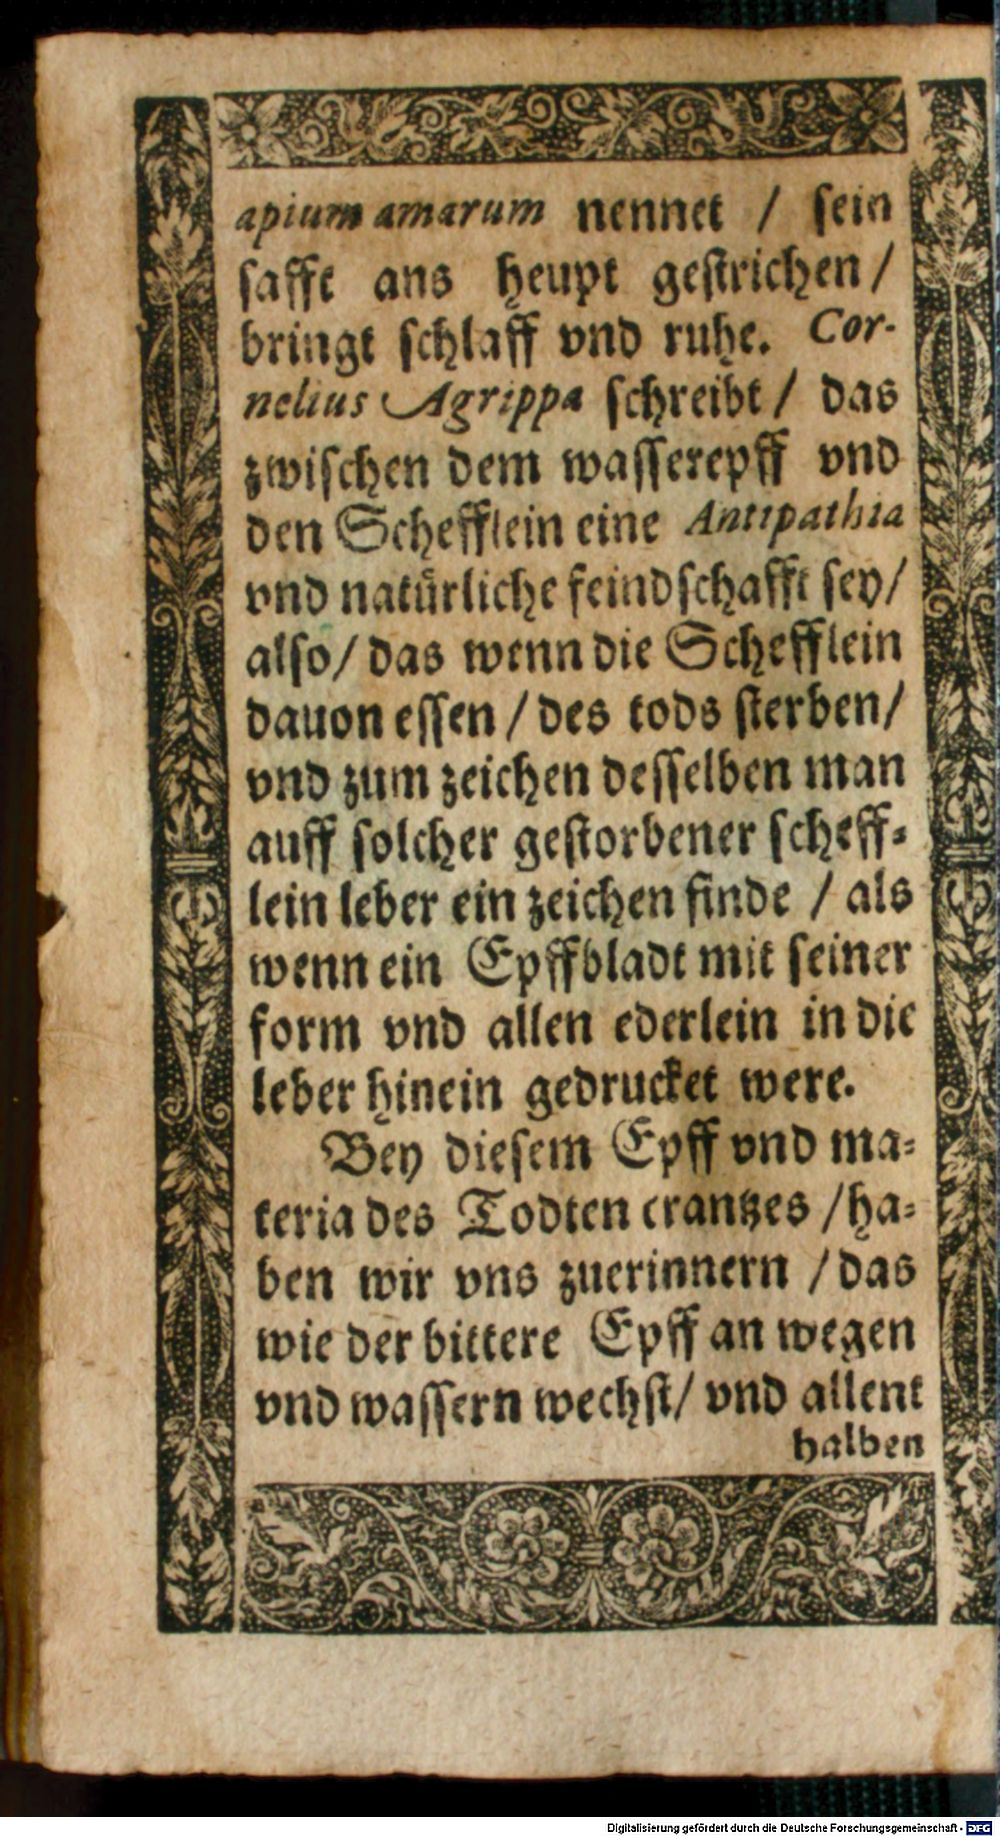 apium amarum nennet / sein
safft ans heupt gestrichen /
bringt schlaff vnd ruhe. Cor-
nelius Agrippa schreibt / das
zwischen dem wasserepff vnd
den Schefflein eine Antipathia
vnd natürliche feindschafft sey /
also / das wenn die Schefflein
dauon essen / des tods sterben /
vnd zum zeichen desselben man
auff solcher gestorbener scheff-
lein leber ein zeichen finde / als
wenn ein Epffbladt mit seiner
form vnd allen ederlein in die
leber hinein gedrucket were.
Bey diesem Epff vnd ma-
teria des Todten crantzes / ha-
ben wir vns zuerinnern / das
wie der bittere Epff an wegen
vnd wassern wechst / vnd allent
halben
Digitalisierung gefördert durch die Deutsche Forschungsgemeinschaft - DFG